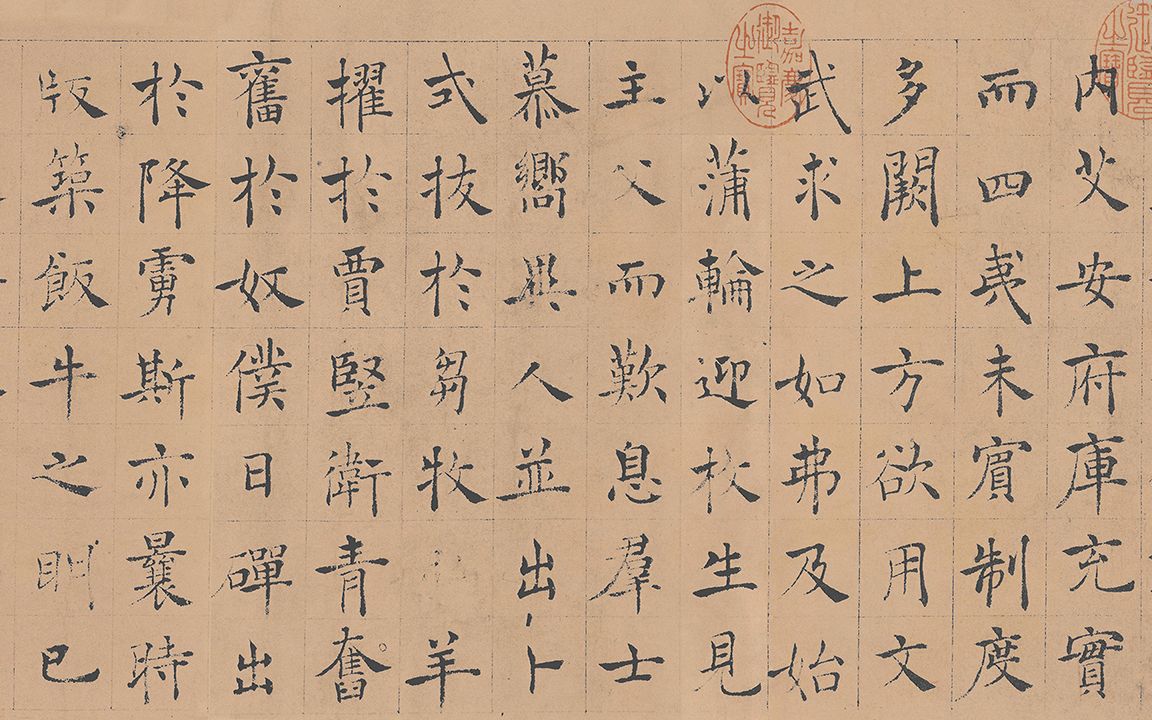 内艾安府庫充實
而四夷未賓制度
多闕上方欲用文
武求之如弗及始
以蒲輪迎枚生見
主父而歎息羣士
慕嚮異人並出卜
式拔於芻牧羊
擢於賈豎衛青奮
舊於奴僕日磾出
於降虜斯亦曩時
版築飯牛之眀已
嘉慶御覽之寶